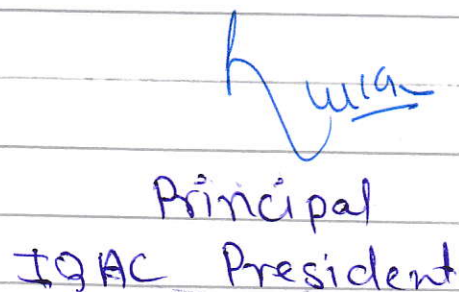 Principal
IQAC President